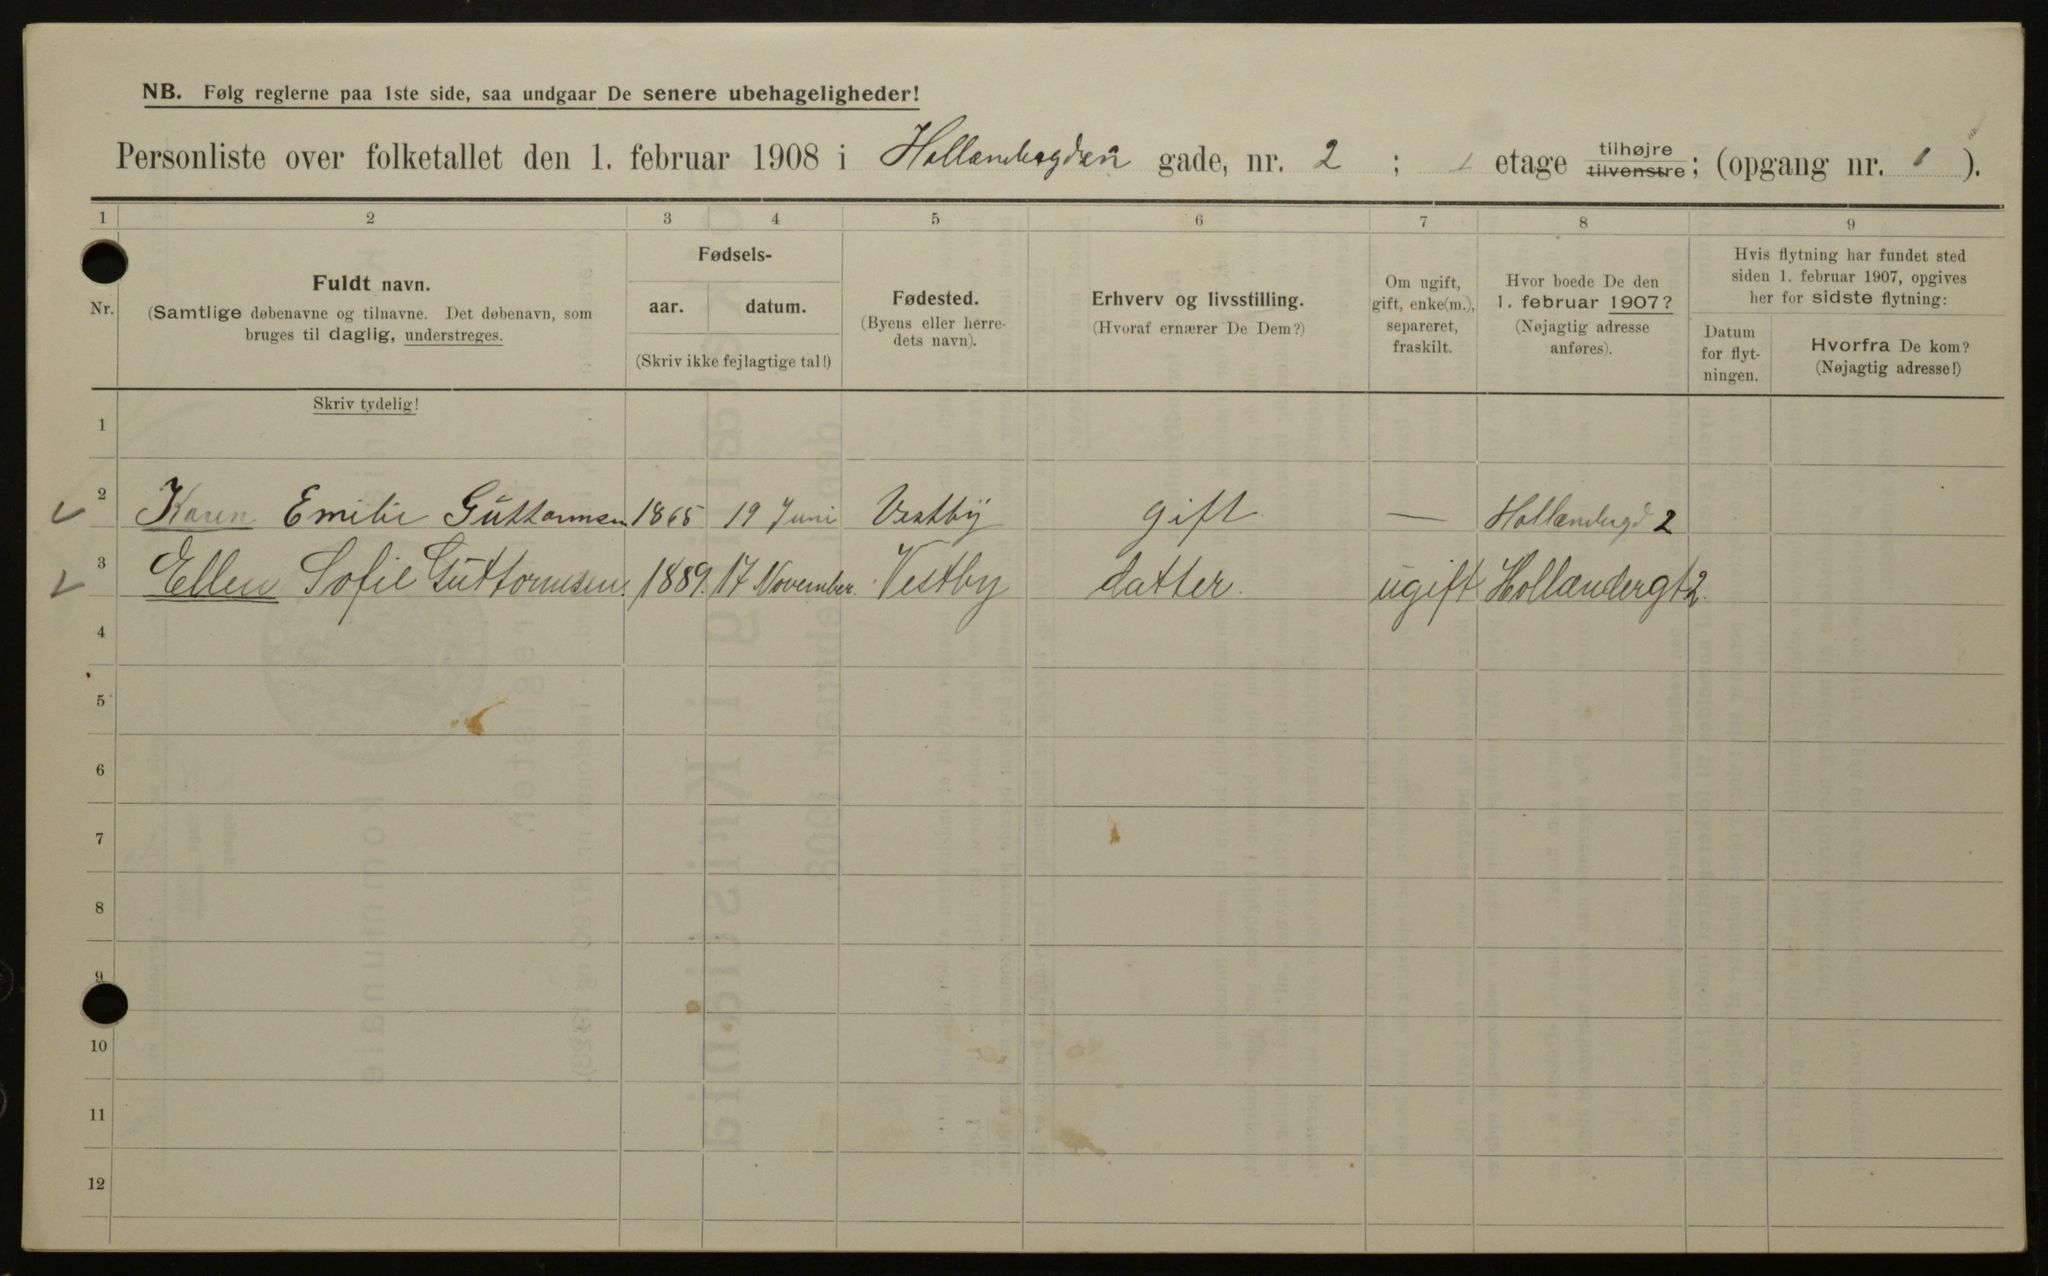 NB. Følg reglerne paa 1ste side, saa undgaar De senere ubehageligheder!
Personliste over folketallet den 1. februar 1908 i gade, nr. 2 ; 1 etage tilhøjre tilvenstre; (opgang nr. 1 ).
1 2 3 4 5 6 7 8 9
Nr.
Fuldt navn.
(Samtlige døbenavne og tilnavne. Det døbenavn, som
bruges til daglig, understreges.
Fødsels-
aar. datum.
(Skriv ikke fejlagtige tal!)
Fødested.
(Byens eller herre-
dets navn).
Erhverv og livsstilling.
(Hvoraf ernærer De Dem?)
Om ugift,
gift, enke(m.),
separeret,
fraskilt.
Hvor boede De den
1. februar 1907?
(Nøjagtig adresse
anføres).
Hvis flytning har fundet sted
siden 1. februar 1907, opgives
her for sidste flytning:
Datum
for flyt-
ningen.
Hvorfra De kom?
(Nøjagtig adresse!)
Skriv tydelig!
1
2 Karen Emilie Guttormsen 1865 19 Juni Vestby gift — 2
3 Ellen Sofie Guttormsen. 1889. 17 November. Vestby datter. ugift Hollændergt 2.
4
5
6
7
8
9
10
11
12